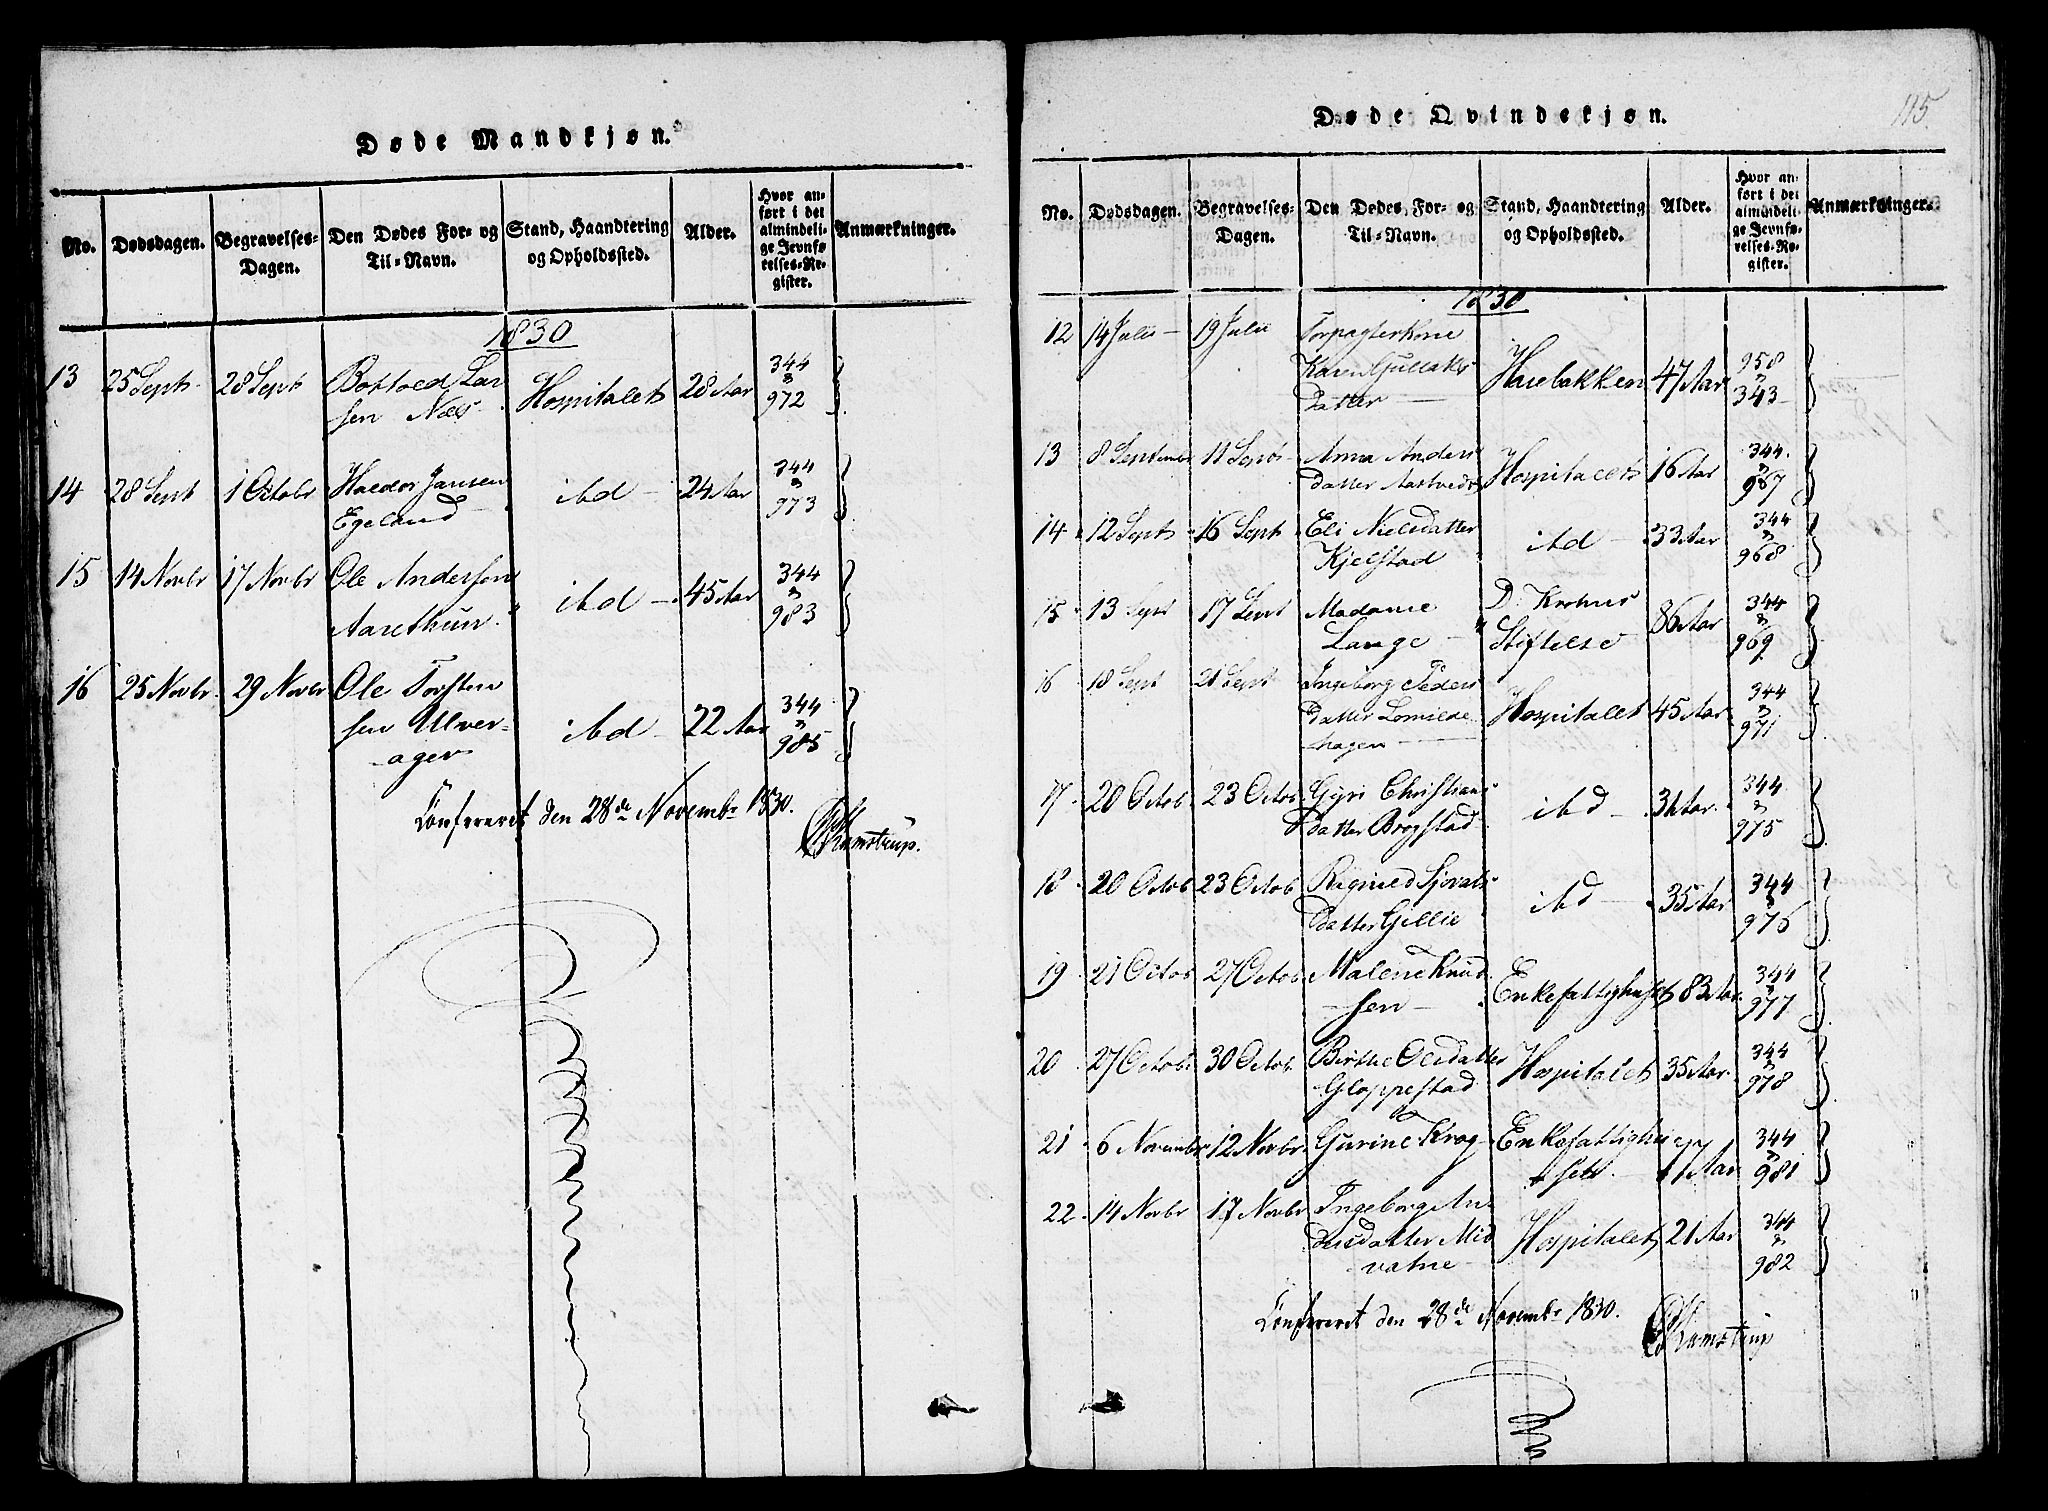 Døde Mandkjøn.
No. Dødsdagen. Begravelses-Dagen. Den Dødes For- og Til-Navn. Stand, Haandtering og Opholdssted. Alder. Hvor anført i det almindelige Jevnførelses-Register. Anmærkninger.
1830
13 25 Sept. 28 Sept Botholed Lar
sen Næs Hospitalet 28 Aar 344 972
14 28 Sept 1 Octobr Haldor Jansen
Egeland ibd 24 Aar 344 973
15 14 Novbr 17 Novbr Ole Anderson
Aarethun ibd 45 Aar 344 983
16 25 Novbr. 29 Novbr Ole Torsten
sen Ulver-
ager ibd 22 Aar 344 985
Confereret den 28de Novembr 1830.
Kamstrup.
115.
Døde Qvindekjøn.
No. Dødsdagen. Begravelses-Dagen. Den Dødes, For- og Til-Navn. Stand, Haandtering og Opholdssted. Alder. Hvor anført i det almindelige Jevnførelses-Register. Anmærkninger.
1830
12 14 Julii 19 Julii Forpagterkone
Karen Gullaks
Datter Harebakken 47 Aar 958 343
13 8 Septembr 11 Septbr Anna Anders
datter Aastvedt Hospitalet 16 Aar 344 967
14 12 Sept 16 Sept Eli Nielsdatter
Kjelstad ibd 33 Aar 344 968
15 13 Sept 17 Sept Madame
Lange D. Krohns
Stiftelse 86 Aar 344 969
16 18 Sept 21 Sept Ingeborg Peders
datter Lomilde
hagen Hospitalet 45 Aar 344 971
17 20 Octob 23 Octob Gyri Christians
datter Brogstad ibd 31 Aar. 344 975
18 20 Octob 23 Octob Rignild Sjovats
datter Gillie ibd 35 Aar 344 976
19 21 Octob 27 Octob Malene Knud
sen Enkefattighuset 83 Aar. 344 977
20 27 Octobr 30 Octob. Birthe Olesdatter
Gloppestad Hospitalet 35 Aar. 344 978
21 6 Novembr 12 Novbr. Gurine Krog Enkefattighu
set 77 Aar 344 981
22 14 Novbr 17 Novbr Ingeborg An
dersdatter Mid
vatne Hospitalet 21 Aar 344 982
Confereret den 28de Novembr 1830.
Kamstrup